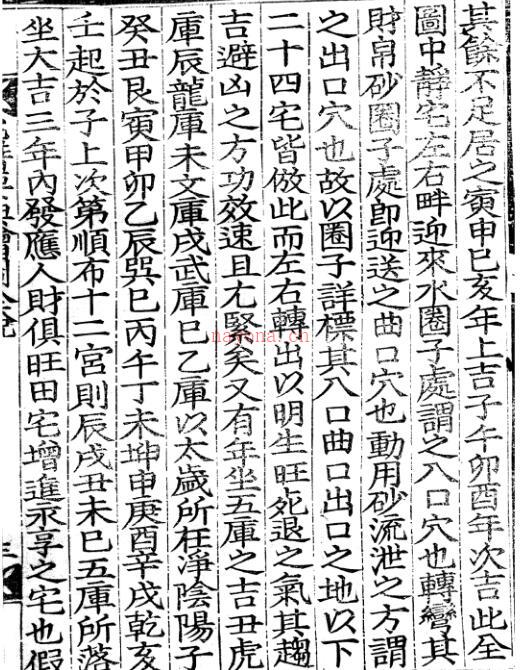 其餘不足居之寅申巳亥年上吉子午卯酉年次吉此全
圖中靜宅左右畔迎來水圈子處謂之入口穴也轉彎其
財帛砂圈子處卽迎送之曲口穴也動用砂流泄之方謂
之出口穴也故以圈子詳標其入口曲口出口之地以下
二十四宅皆倣此而左右轉出以明生旺死退之氣其趨
吉避凶之方功效速且尤緊矣又有年坐五庫之吉丑虎
庫辰龍庫未文庫戌武庫巳乙庫以太歲所在淨陰陽子
癸丑艮寅甲卯乙辰巽巳丙午丁未坤申庚酉辛戌乾亥
壬起於子上次第順布十二宮則辰戌丑未巳五庫所落
坐大吉三年內發應人財俱旺田宅增進永享之宅也假
nayona.cn